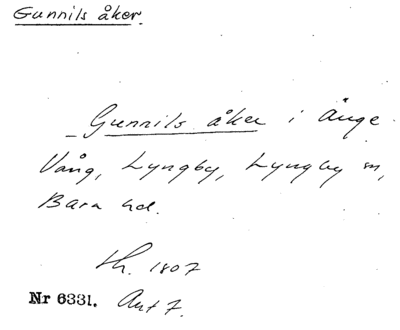 Gunnils åker.
Gunnils åker i Änge
Vång, Lyngby, Lyngby sn,
Bara hd.
1807
Nr 6331. Ant 7.